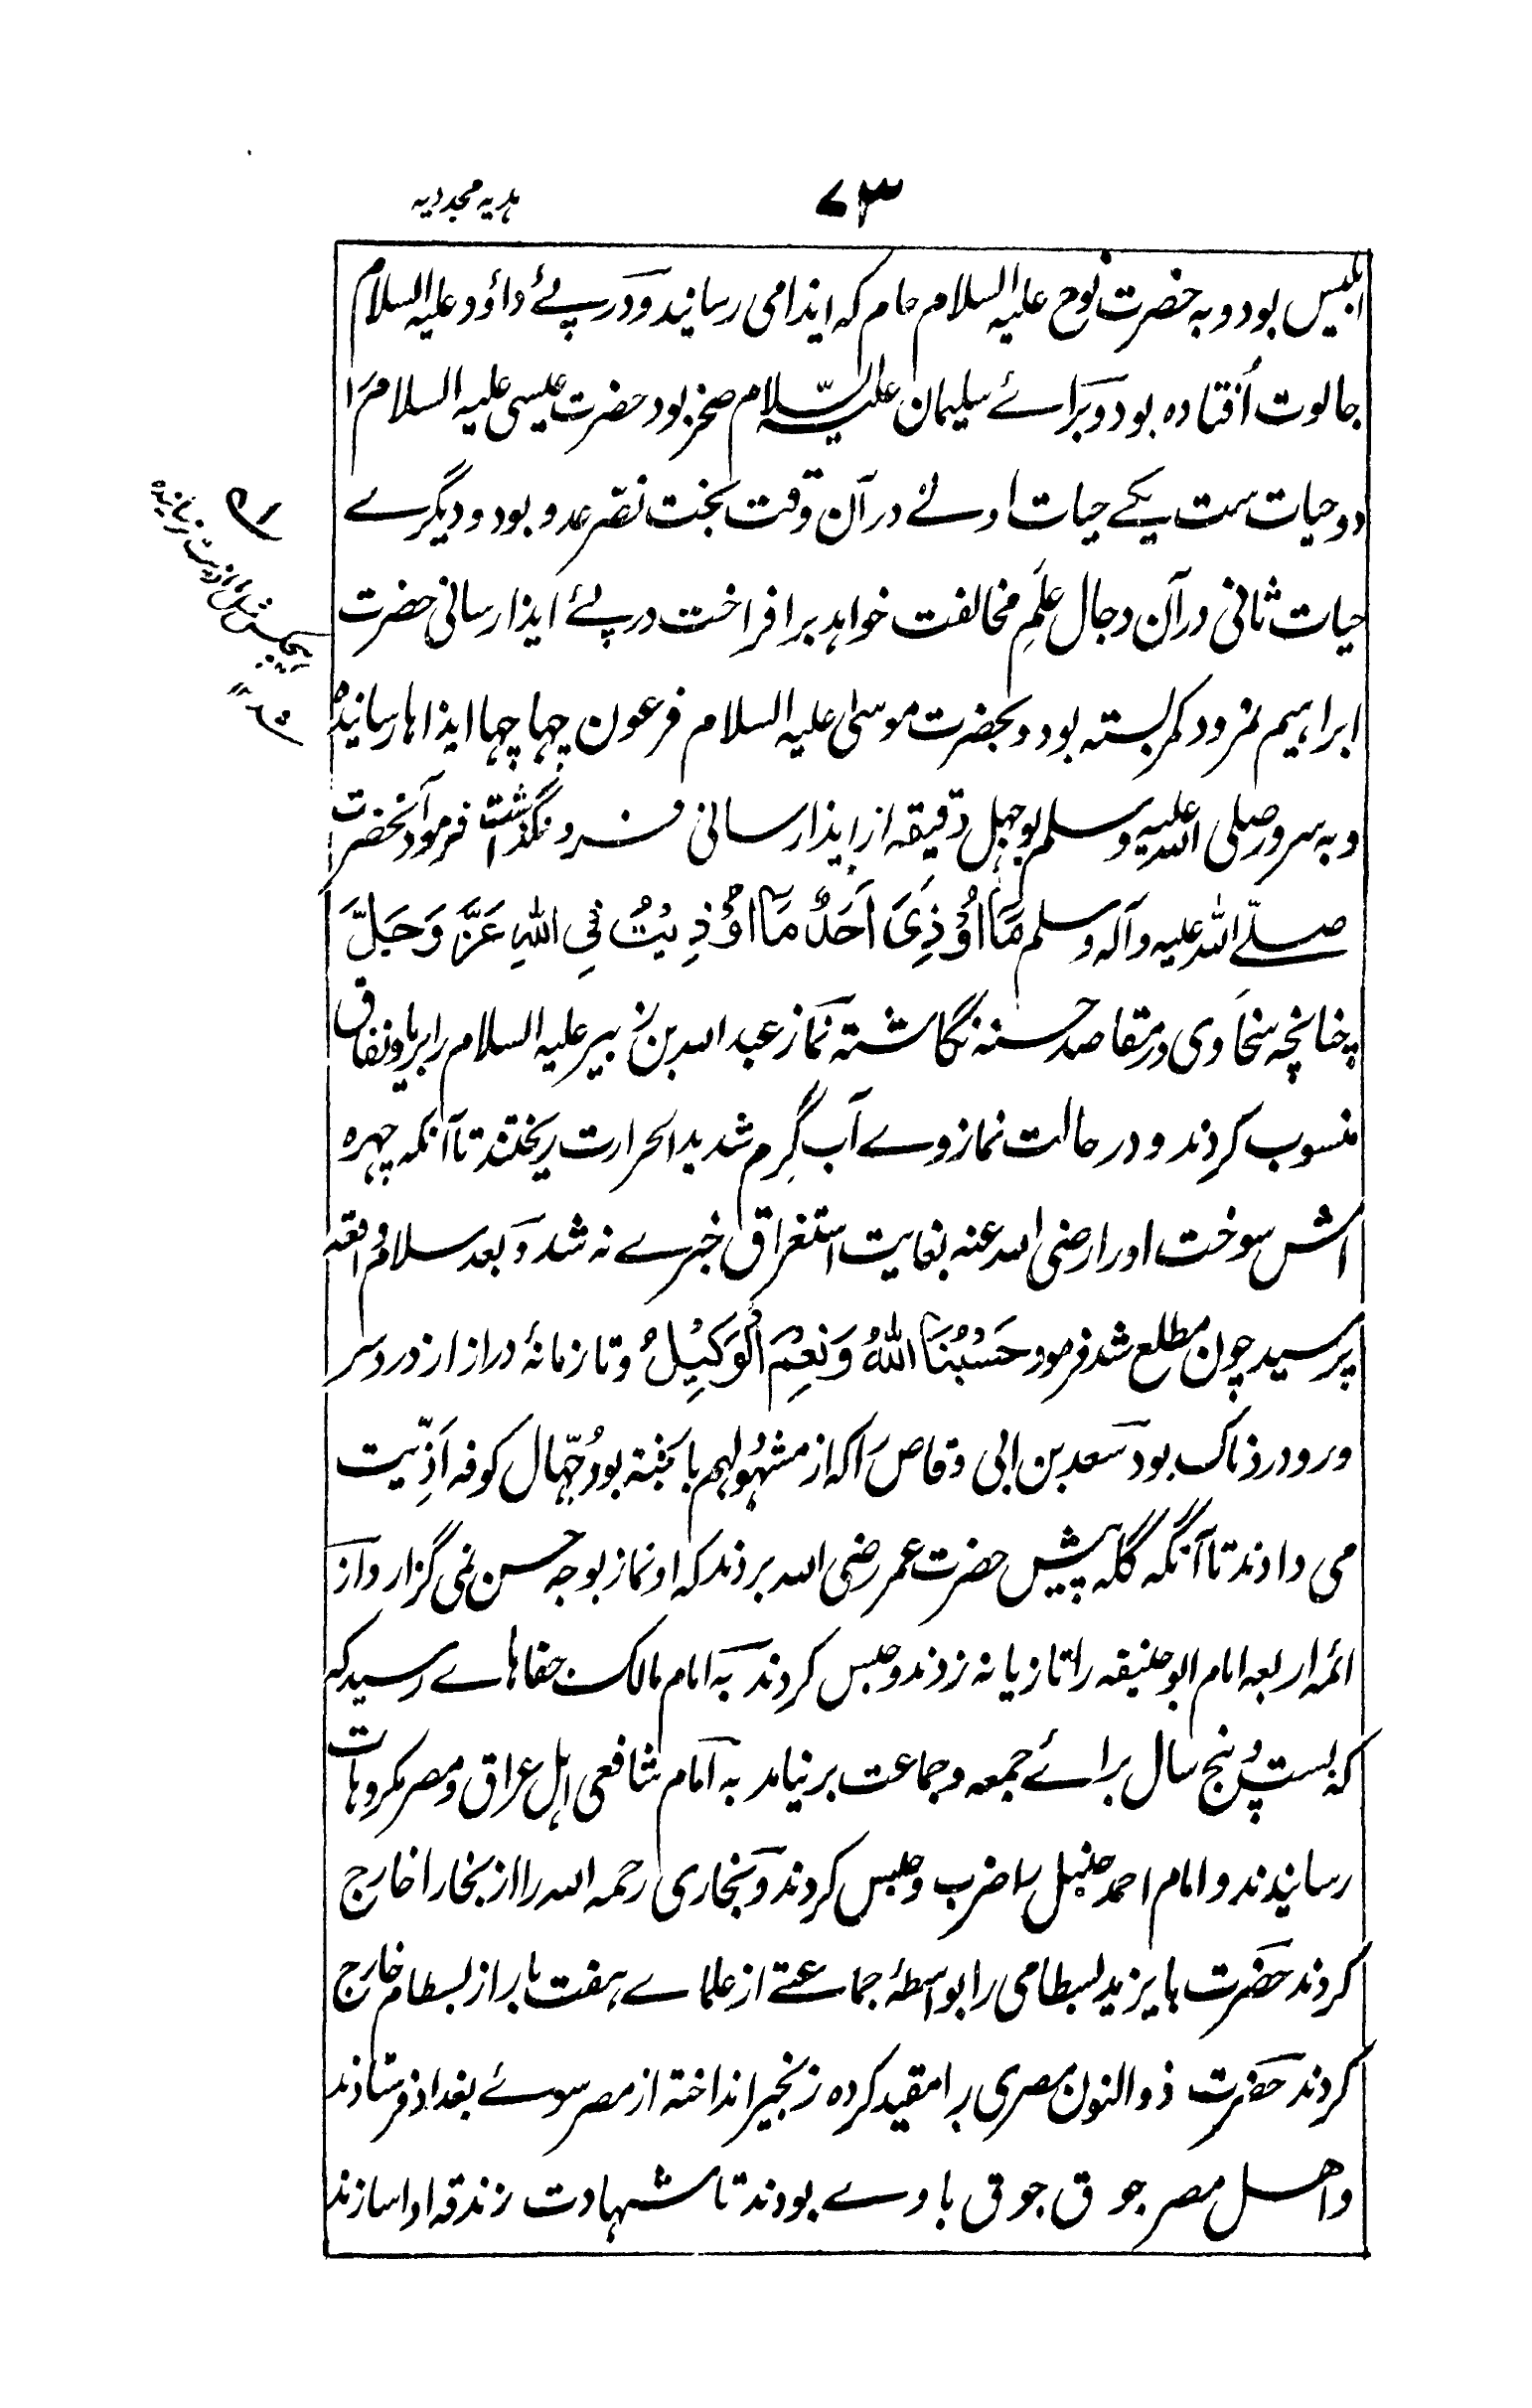 ۷۳
ہدیہ مجددیہ
ابلیس بود و به حضرت نوح علیہ السلام حام کہ ایذا می رسانید و در پئے داؤد علیہ السلام
جالوت اُفتادہ بود و برائے سلیمان علیہ السّلام صخر بود حضرت عیسی علیہ السلام را
دو حیات ست یکے حیات اولے در آن وقت بخت نصّر عدو بود و دیگرے
حیات ثانی در آن دجال عَلَمِ مخالفت خواہد برافراخت در پئے ایذا رسانی حضرت
ابراہیم نمرود کمر بستہ بود و بحضرت موسیٰ علیہ السلام فرعون چہا چہا ایذاہا رسانیدہ
و بہ سرور صلی اللہ علیہ وسلم بوجہل دقیقہ از ایذا رسانی فرو نگذاشت فرمود آنحضرت
صلّے اللہ علیہ وآلہ وسلم مَا اُوْذِیَ اَحَدٌ مَا اُوْذِیْتُ فِی اللّٰہِ عَزَّ وَجَلَّ
چنانچہ سخاوی در مقاصد حسنہ نگاشتہ نماز عبد اللہ بن زبیر علیہ السلام را بریا و نفاق
منسوب کردند و در حالت نماز وے آب گرم شدید الحرارت ریختند تا آنکہ چہرہ
اش سوخت او را رضی اللہ عنہ بغایت استغراق خبرے نہ شد و بعد سلام واقعہ
پرسید چون مطلع شد فرمود حَسْبُنَا اللّٰہُ وَنِعْمَ الْوَکِیْلُ و تا زمانۂ دراز از درد سر
و رو دردناک بود سعد بن ابی وقاص را کہ از مشہود لہم بالجنۃ بود جُہّال کوفہ اَذِیّت
می دادند تا آنگہ گلہ پیش حضرت عمر رضی اللہ بردند کہ او نماز بوجہ حسن نمی گزارد و از
ائمہ اربعہ امام ابو حنیفہ را تازیانہ زدند و حبس کردند بہ امام مالک جفاہاے رسید کہ
کہ بست و پنج سال برائے جمعہ و جماعت برنیامد بہ امام شافعی اہل عراق و مصر مکروہات
رسانیدند و امام احمد حنبل را ضرب و حبس کردند و بخاری رحمہ اللہ را از بخارا خارج
کردند حضرت بایزید بسطامی را بواسطۂ جماعتے از علماے ہفت بار از بسطام خارج
کردند حضرت ذو النون مصری را مقید کردہ زنجیر انداختہ از مصر سوئے بغداد فرستادند
و اہل مصر جوق جوق با وے بودند تا شہادت زندقہ ادا سازند